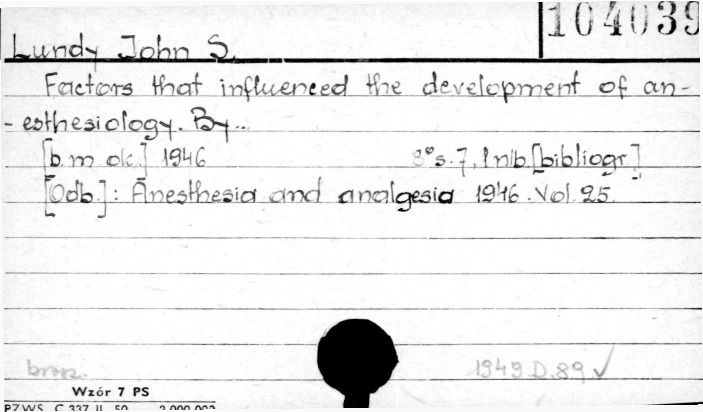 104039
Lundy John S.
Factors that influenced the development of an-
-esthesiology. By...
[b.m. ok.] 1946 8°s.7, 1 nlb. [bibliogr.]
[Odb.]: Anesthesia and analgesia 1946. Vol. 25.
brosz.
1949.D.89 ✓
Wzór 7 PS
PZWS. C 337 II. 50